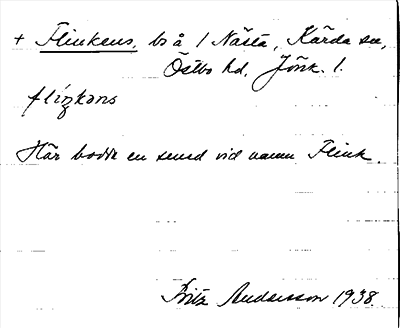 + Flinkens, bs å 1 Nästa, Kärda sn,
Östbo hd, Jönk. l.
flíŋkəns
Här bodde en smed vid namn Flink.
Fritz Andersson 1938.